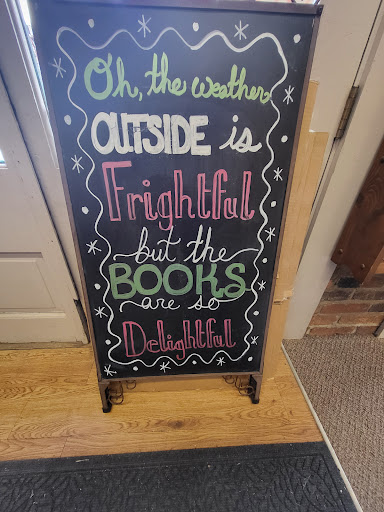 Oh, the weather
OUTSIDE is
Frightful
but the
BOOKS
are so
Delightful